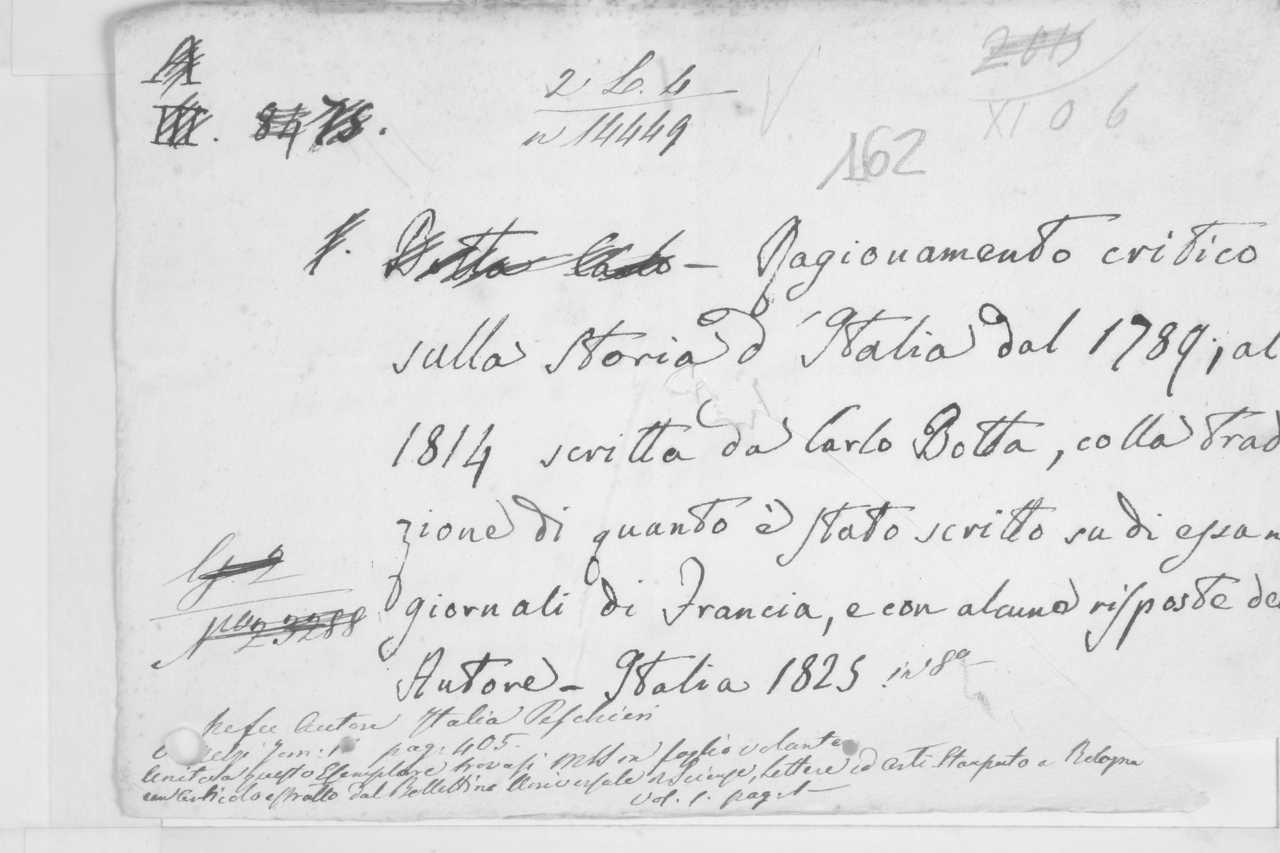 2 L. 4
n 14449
XI 0 6
162
Botta Carlo - Ragionamento critico
sulla storia d'Italia dal 1789, al
1814 scritta da Carlo Botta, colla trad
zione di quanto è stato scritto su di essa n
giornali di Francia, e con alcune risposte de
Autore - Italia 1825 in 8º
pag 23288
Autore Italia Peschieri
pag: 405.
questo Esemplare trovasi MSS in foglio volante
articolo estratto dal Bollettino Universale di Scienze, Lettere ed Arti Stampato a Bologna
vol. 1. pag. 1